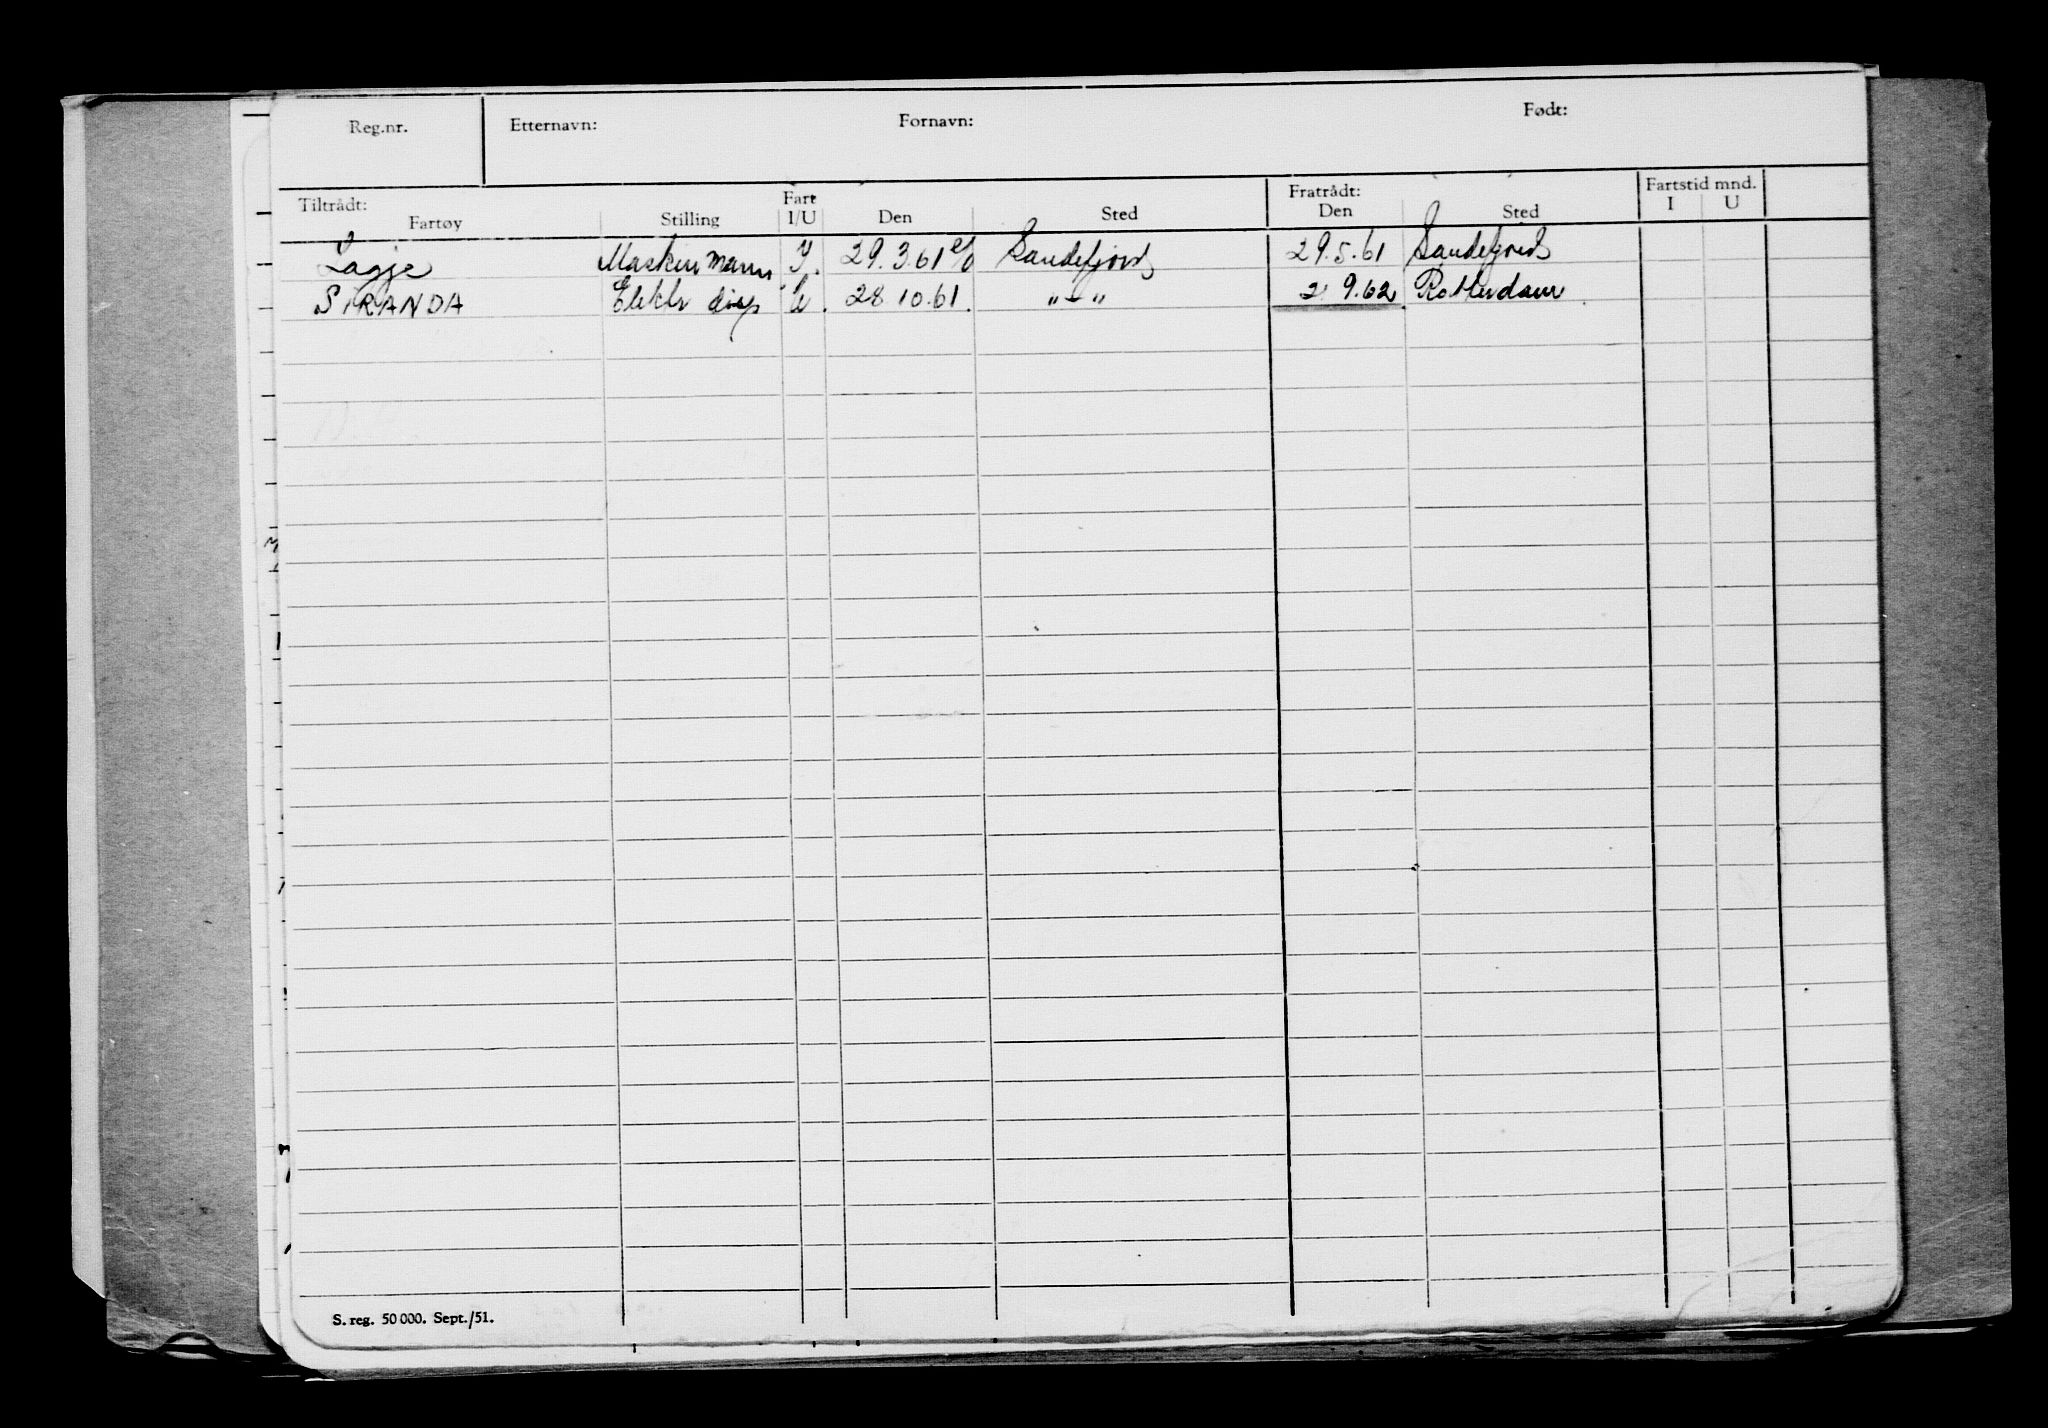 Reg.nr. Etternavn: Fornavn: Født:
Tiltrådt: Fart Fratrådt: Fartstid mnd.
Fartøy Stilling I/U Den Sted Den Sted I U
Lagje Maskinmann I. 29.3.61 Sandefjord 29.5.61 Sandefjord
SIRANDA Elektr U. 28 10.61. „-„ 9.62 Rotterdam
S. reg. 50 000. Sept./51.